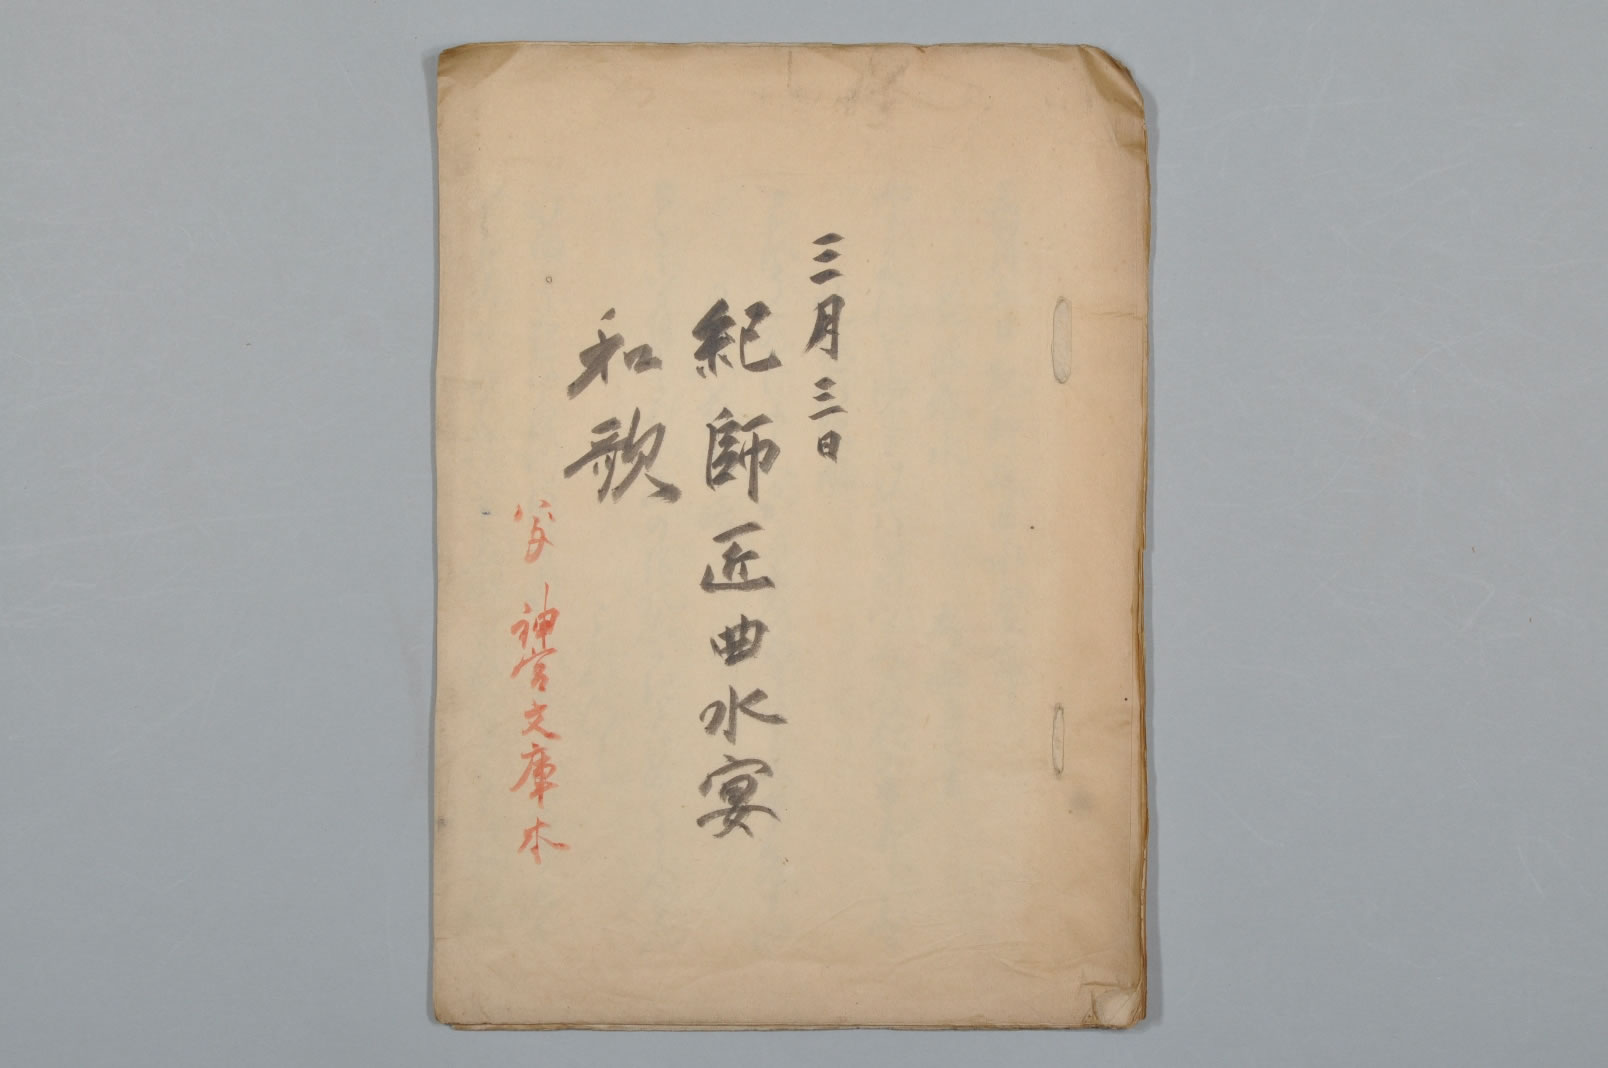 三月三日
紀師匠曲水宴
和歌
写 神宮文庫本